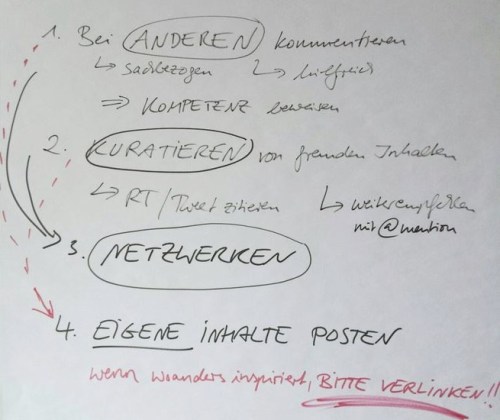 1. Bei ANDEREN kommentieren
↳ sachbezogen ↳ hilfreich
⇒ KOMPETENZ beweisen
2. KURATIEREN von fremden Inhalten
↳ RT / Tweet zitieren ↳ weiterempfehlen
mit @mention
3. NETZWERKEN
4. EIGENE INHALTE POSTEN
wenn woanders inspiriert, BITTE VERLINKEN!!